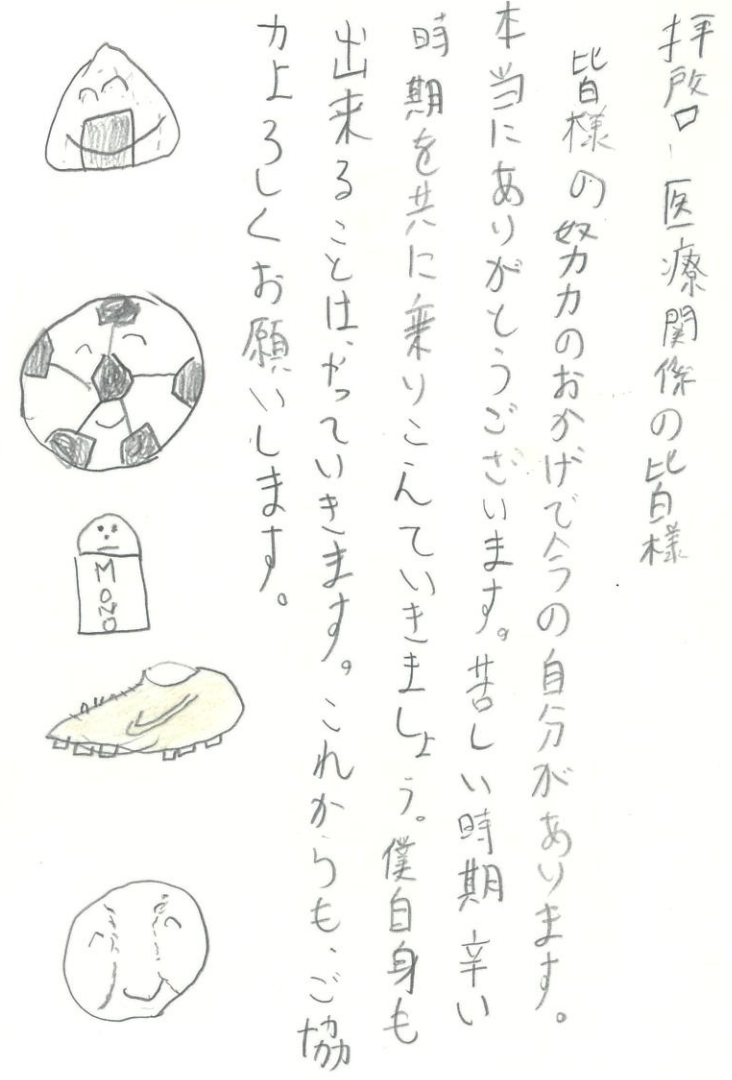 拝啓、医療関係の皆様
皆様の努力のおかげで今の自分があります。
本当にありがとうございます。苦しい時期辛い
時期を共に乗りこんていきましょう。僕自身も
出来ることは、やっていきます。これからも、ご協
力よろしくお願いします。
MONO